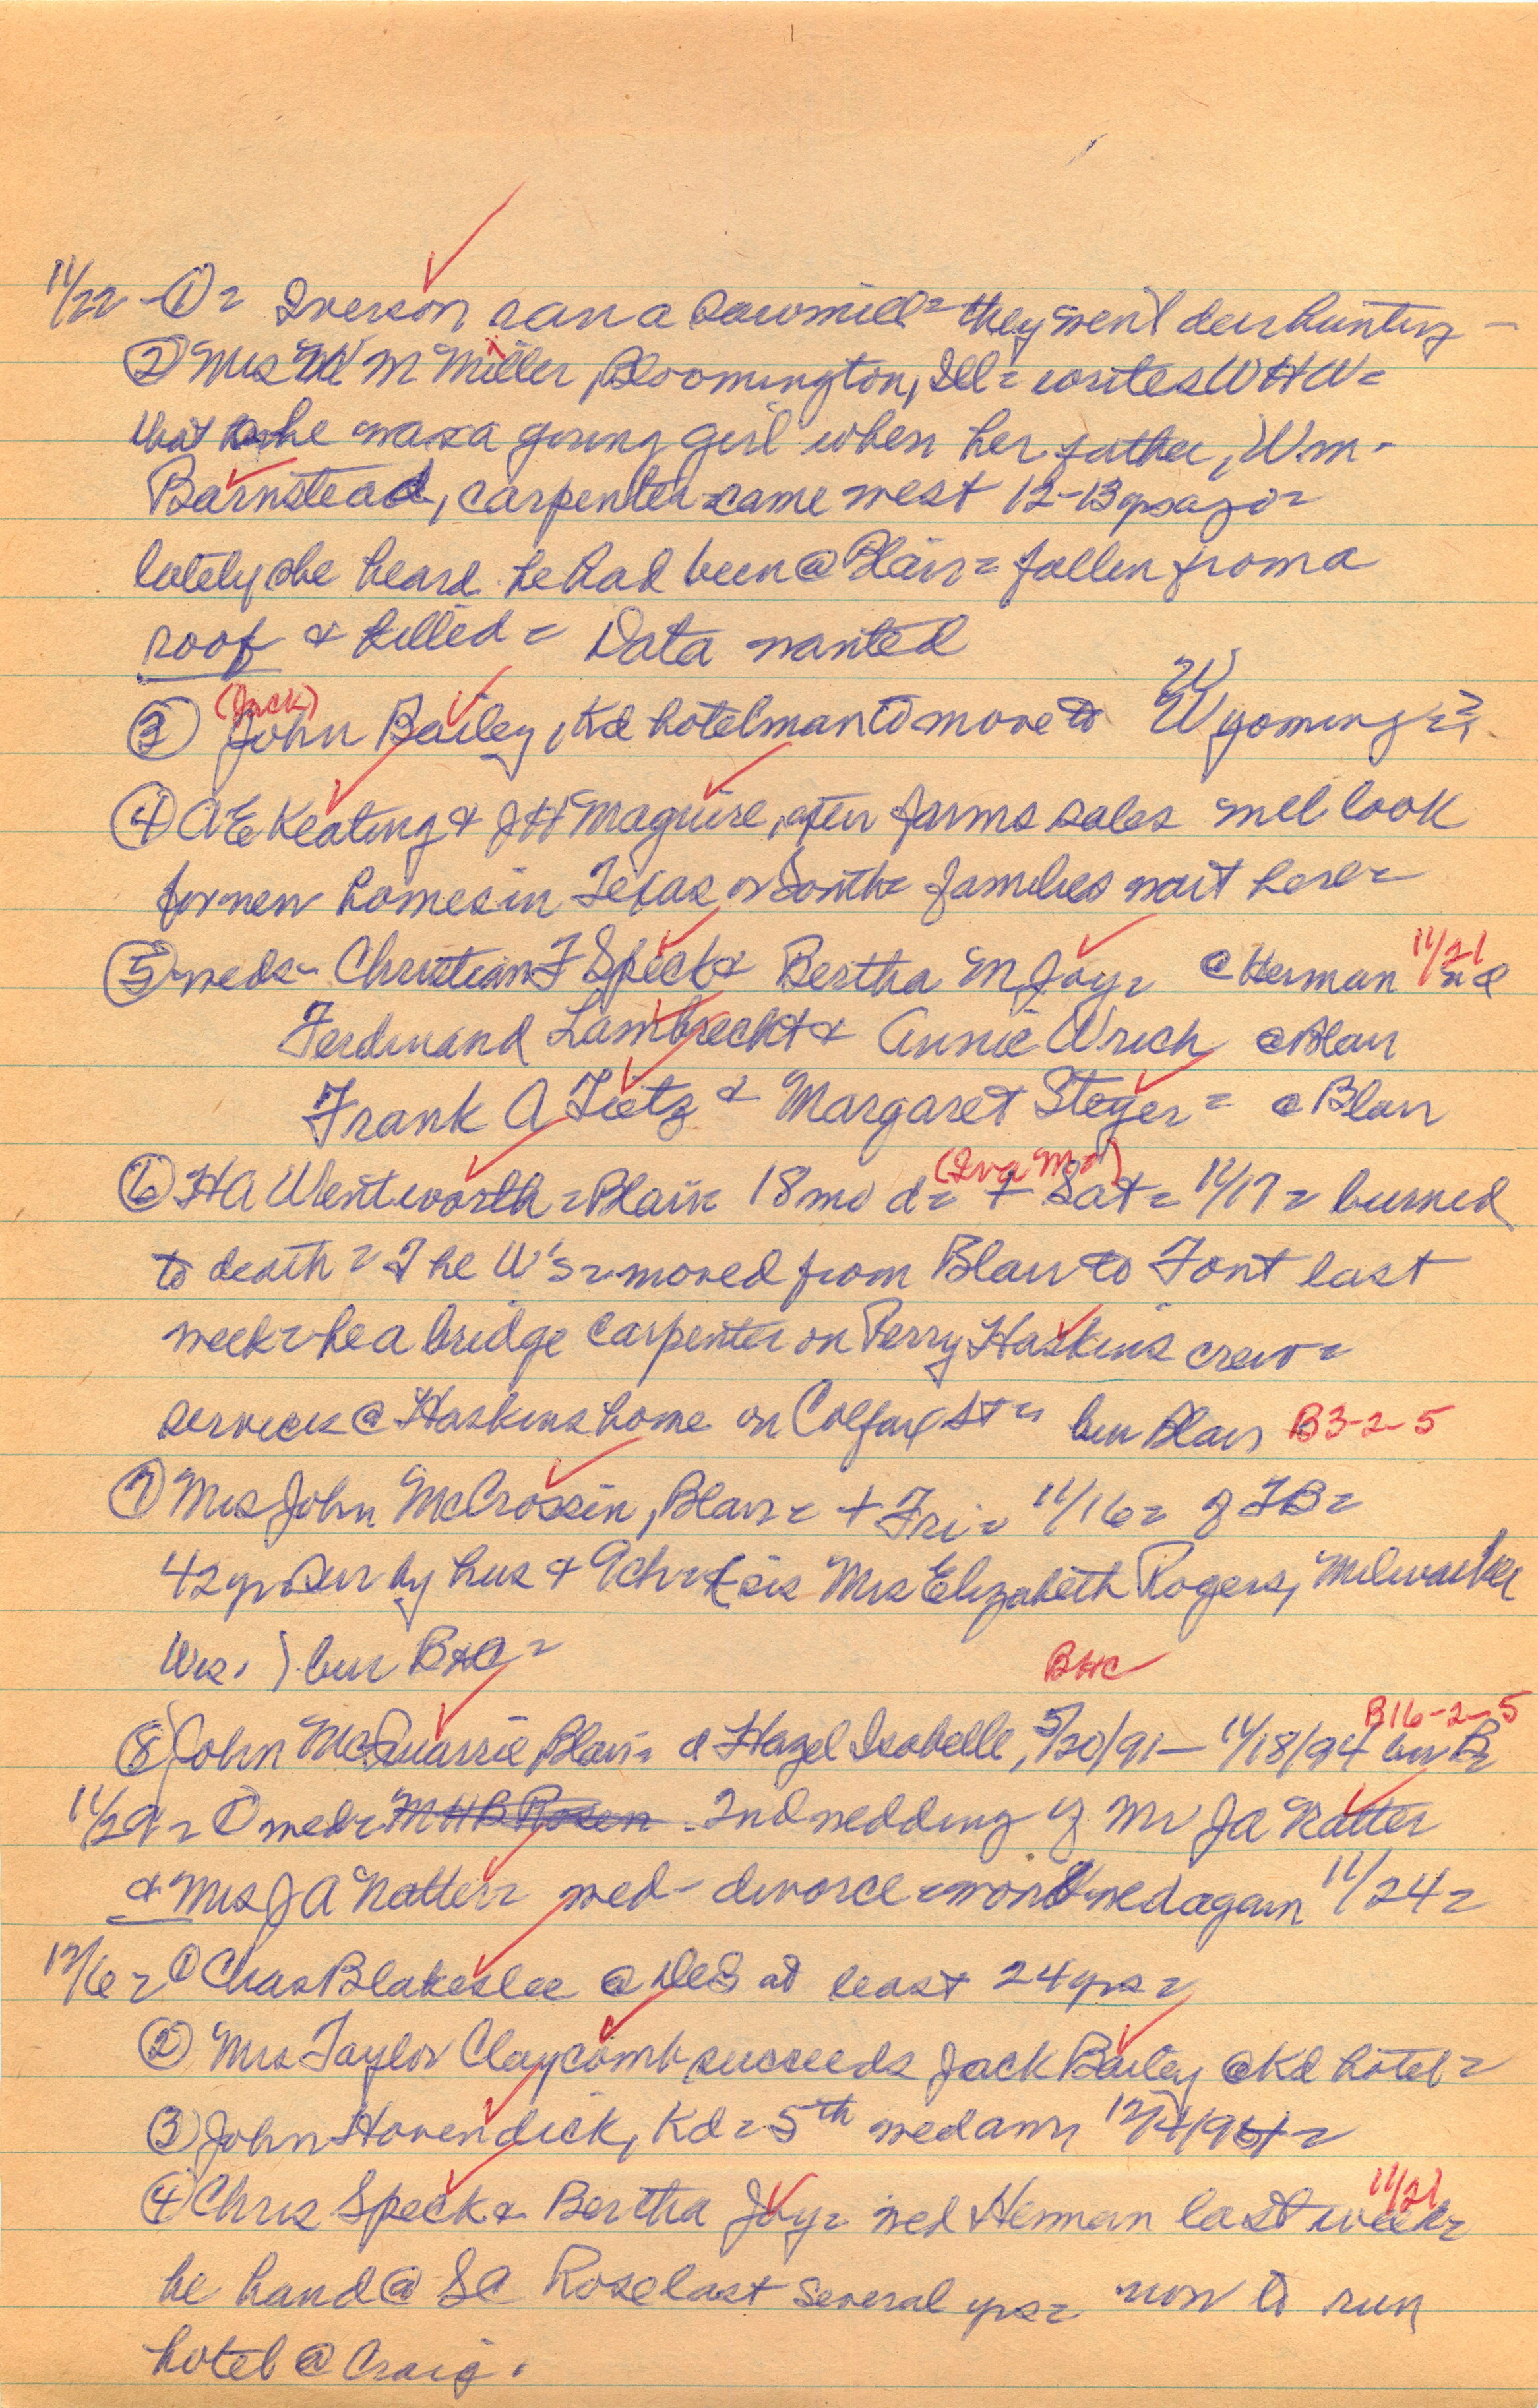 11/22 - ① = Iverson ran a sawmill = they went deer hunting -
② Mrs W M Miller, Bloomington, Ill = writes WHW =
that she was a young girl when her father, Wm.
Barnstead, carpenter came west 12-13 yrs ago =
lately she heard he had been @ Blair = fallen from a
roof & killed = Data wanted
③ (Jack) John Bailey, Kd hotelman to move to Wyoming =
④ A E Keating & J H Maguire, after farms sales will look
for new homes in Texas or South = families wait here =
⑤ weds - Christian F Speck & Bertha M Joy = @ Herman 11/21
Ferdinand Lambrecht & Annie Wrich @ Blair
Frank A Tietz & Margaret Steyer = @ Blair
⑥ H A Wentworth = Blair = 18 mo d = (Iva M =) + Sat = 11/17 = burned
to death = The W's = moved from Blair to Font last
week = he a bridge carpenter on Perry Haskins crew =
services @ Haskins home on Colfax St = bur Blair B3-2-5
⑦ Mrs John McCrossin, Blair = + Fri = 11/16 = of TB =
42 yrs Sur by hus & 9 ch = (sis Mrs Elizabeth Rogers, Milwaukee
Wis.) bur BHC =
BHC
⑧ John McQuarrie, Blair = d Hazel Isabelle, 5/20/91 - 11/18/94 bur Br B16-2-5
11/29 = ① wed = M H B Rosen. 2nd wedding of Mr J A Natter
& Mrs J A Natter = wed - divorce = wed again 11/24 =
12/6 = ① Chas Blakeslee @ DeS at least 24 yrs =
② Mrs Taylor Claycomb succeeds Jack Bailey @ Kd hotel =
③ John Hovendick, Kd = 5th wed ann 12/4/94 =
④ Chris Speck & Bertha Joy = wed Herman last week = 11/21
he hand @ S C Rose last several yrs = now to run
hotel @ Craig.